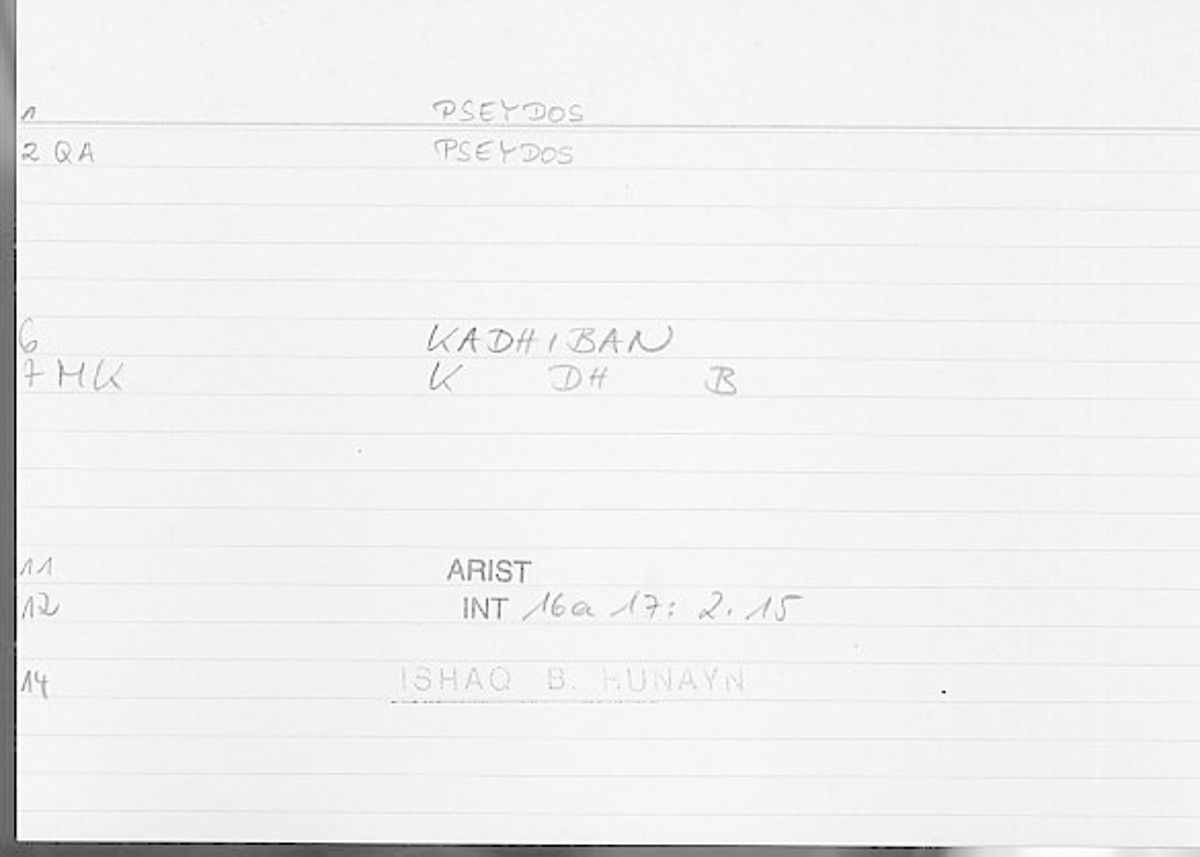 1 PSEYDOS
2 QA PSEYDOS
6 KADHIBAN
7 MK K DH B
11 ARIST
12 INT 16a 17: 2. 15
14 ISHAQ B. HUNAYN